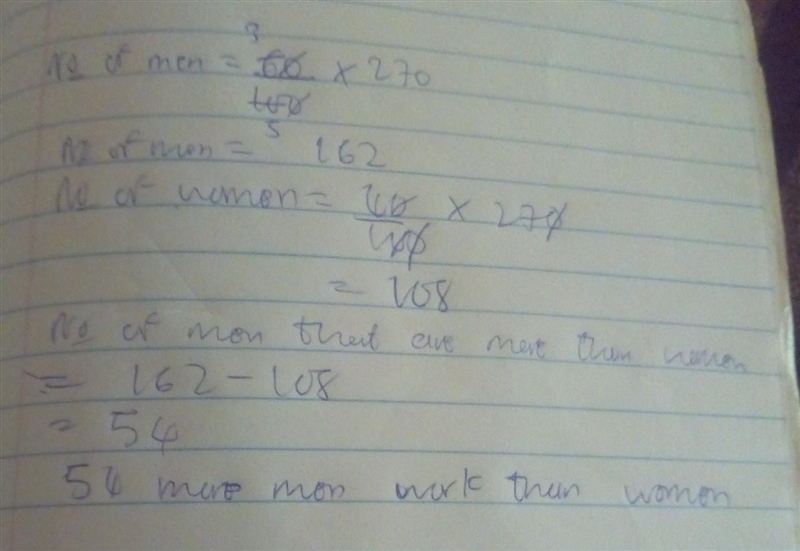 No of men = 60/100 × 270
3
5
No of men = 162
No of women = 40/100 × 270
= 108
No of men that are more than women
= 162 - 108
= 54
54 more men work than women